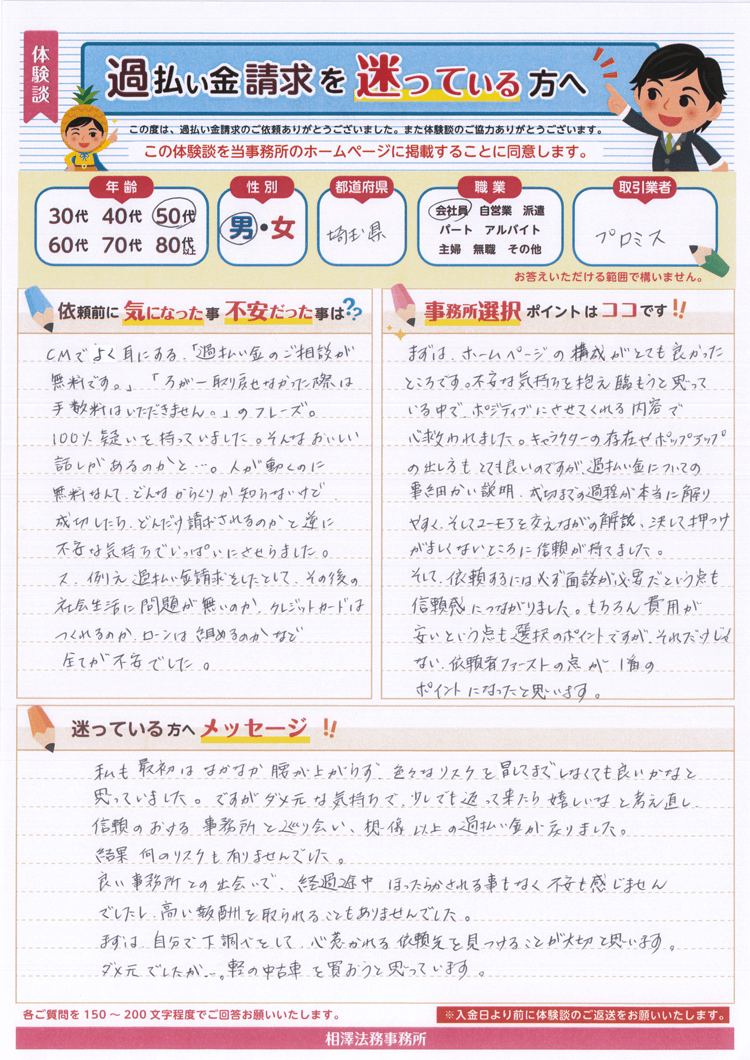 体験談
過払い金請求を迷っている方へ
この度は、過払い金請求のご依頼ありがとうございました。また体験談のご協力ありがとうございます。
この体験談を当事務所のホームページに掲載することに同意します。
年齢
30代 40代 50代
60代 70代 80代以上
性別
男・女
都道府県
埼玉県
職業
会社員 自営業 派遣
パート アルバイト
主婦 無職 その他
取引業者
プロミス
お答えいただける範囲で構いません。
依頼前に気になった事 不安だった事は??
CMでよく耳にする、「過払い金のご相談が
無料です。」「万が一取り戻せなかった際は
手数料はいただきません。」のフレーズ。
100%疑いを持っていました。そんなおいしい
話しがあるのかと…。人が動くのに
無料なんて、どんなからくりか知らないけど、
成功したら、どんだけ請求されるのかと逆に
不安な気持ちでいっぱいにさせらました。
又、例え過払い金請求をしたとして、その後の
社会生活に問題が無いのか、クレジットカードは
つくれるのか、ローンは組めるのかなど
全てが不安でした。
事務所選択ポイントはココです!!
まずは、ホームページの構成がとても良かった
ところです。不安な気持ちを抱え臨もうと思って
いる中で、ポジティブにさせてくれる内容で
心救われました。キャラクターの存在やポップアップ
の出し方もとても良いのですが、過払い金についての
事細かい説明、成功までの過程が本当に解り
やすく、そしてユーモアを交えながらの解説、決して押つけ
がましくないところに信頼が持てました。
そして、依頼するには必ず面談が必要だという点も
信頼感につながりました。もちろん費用が
安いという点も選択のポイントですが、それだけじゃ
ない、依頼者ファーストの点が1番の
ポイントになったと思います。
迷っている方へメッセージ!!
私も最初はなかなか腰が上がらず、色々なリスクを冒してまでしなくても良いかなと
思っていました。ですがダメ元な気持ちで、少しでも返って来たら嬉しいなと考え直し
信頼のおける事務所と巡り会い、想像以上の過払い金が戻りました。
結果何のリスクも有りませんでした。
良い事務所との出会いで、経過途中ほったらかされる事もなく不安も感じません
でしたし、高い報酬を取られることもありませんでした。
まずは、自分で下調べをして、心惹かれる依頼先を見つけることが大切と思います。
ダメ元でしたが…、軽の中古車を買おうと思っています。
各ご質問を150~200文字程度でご回答お願いいたします。
※入金日より前に体験談のご返送をお願いいたします。
相澤法務事務所